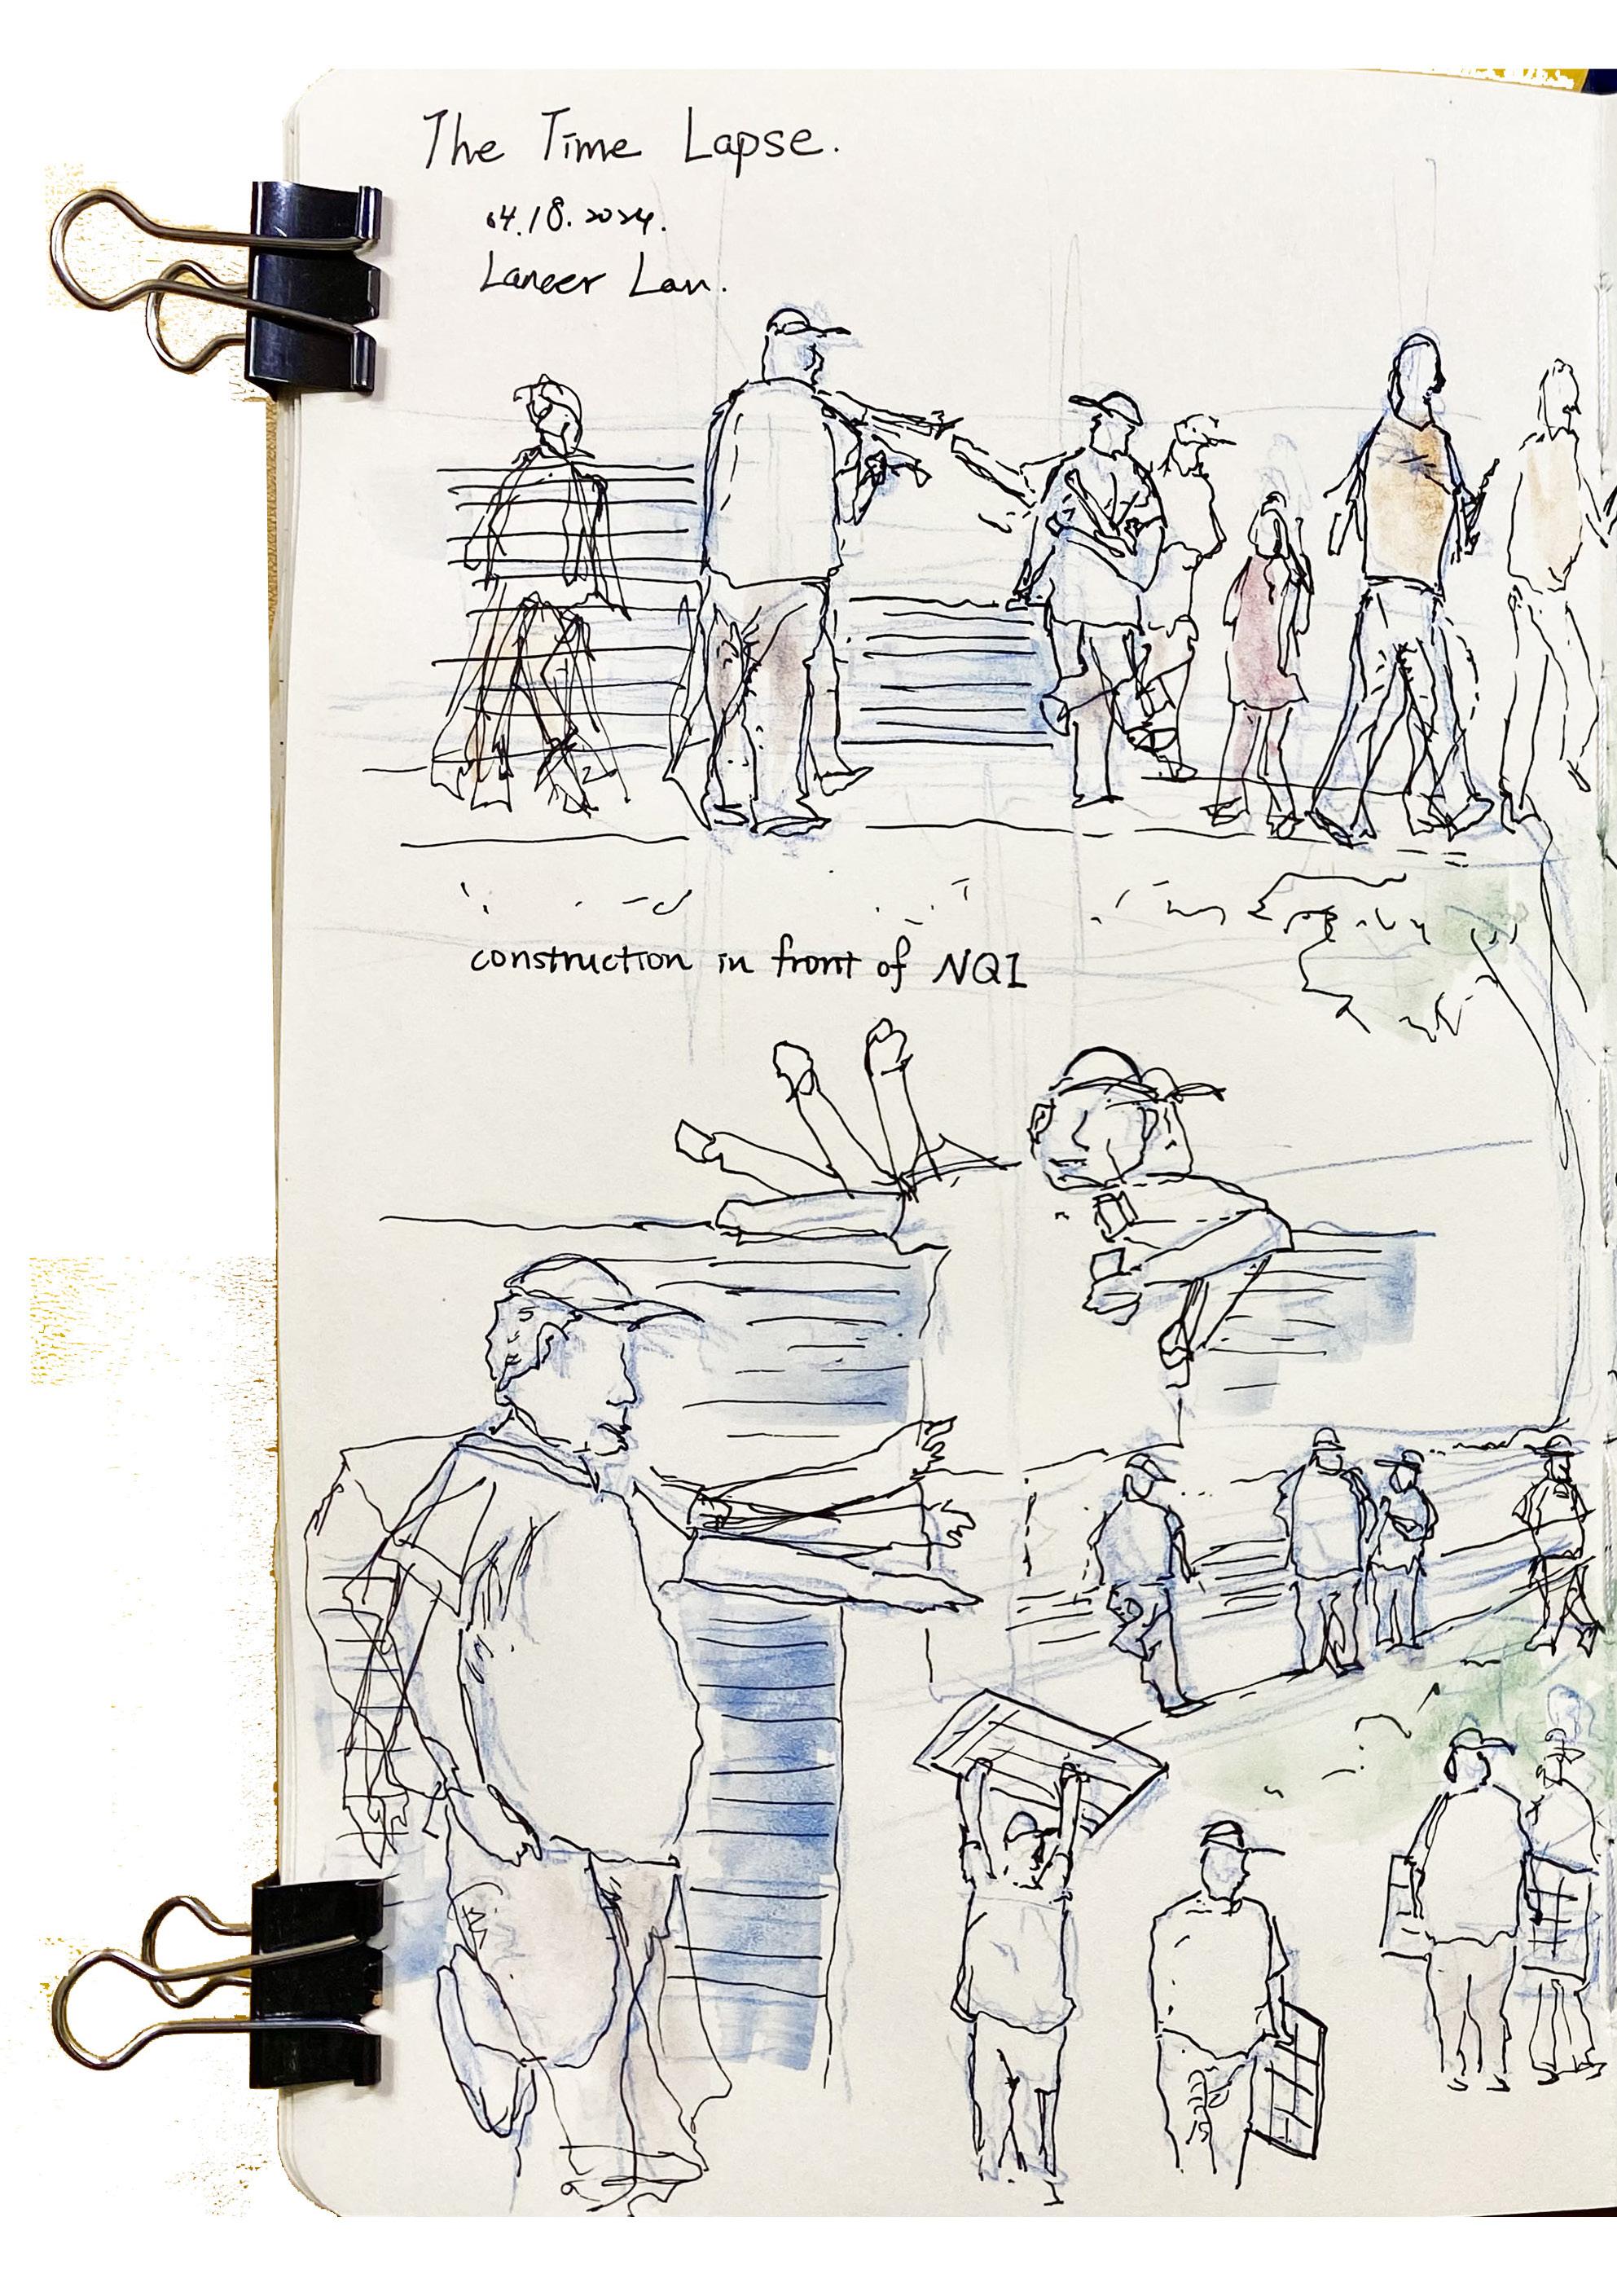 The Time Lapse.
04.18.2024.
Lancer Lau.
construction in front of NQ1